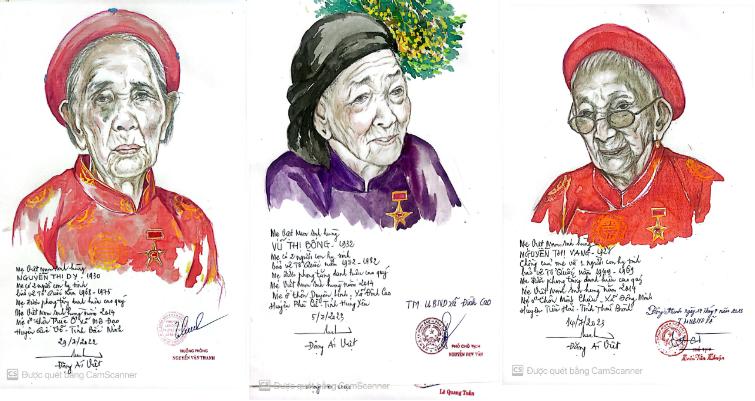 Mẹ Việt Nam Anh hùng
NGUYỄN THỊ DỴ - 1930
Mẹ có 2 người con hy sinh
bảo vệ Tổ Quốc năm 1968 - 1975
Mẹ được phong tặng danh hiệu cao quý
Mẹ Việt Nam Anh hùng năm 2014
Mẹ ở thôn Đạo
Huyện Quế Võ - Tỉnh Bắc Ninh
29/7/2022
Đặng Ái Việt
TRƯỞNG PHÒNG
NGUYỄN VĂN THANH
CS Được quét bằng CamScanner
Mẹ Việt Nam Anh hùng
VŨ THỊ BÔNG - 1932
Mẹ có 2 người con hy sinh
bảo vệ Tổ Quốc năm 1972 - 1982
Mẹ được phong tặng danh hiệu cao quý
Mẹ Việt Nam Anh hùng năm 2014
Mẹ ở thôn Duyên Linh, Xã Đình Cao
Huyện Phù Cừ - Tỉnh Hưng Yên
5/7/2023
Đặng Ái Việt
TM UBND Xã Đình Cao
PHÓ CHỦ TỊCH
NGUYỄN DUY VĂN
CS Được quét bằng CamScanner
Lê Quang Tuấn
Mẹ Việt Nam Anh hùng
NGUYỄN THỊ VANG
Chồng con mẹ hy sinh
bảo vệ Tổ Quốc năm 1949 - 1969
Mẹ được phong tặng danh hiệu cao quý
Mẹ Việt Nam Anh hùng năm 2014
Mẹ ở thôn Minh Châu, Xã Đông Minh
Huyện Tiền Hải - Tỉnh Thái Bình
14/7/2023
Đặng Ái Việt
CS Được quét bằng CamScanner